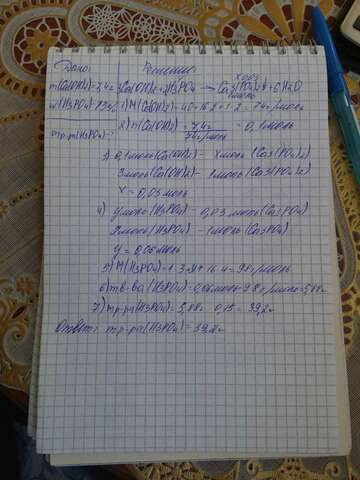 Дано: Решение:
m(Ca(OH)2)=7,4г 3Ca(OH)2+2H3PO4 → Ca3(PO4)2+6H2O
w(H3PO4)-15% 1) M(Ca(OH)2)-40+16·2+1·2=74г/моль
2) n(Ca(OH)2)=7,4г/74г/моль=0,1моль
mр-ра(H3PO4)-?
3) 0,1моль(Ca(OH)2)- xмоль(Ca3(PO4)2)
3моль(Ca(OH)2)- 1моль(Ca3(PO4)2)
x=0,03моль
4) yмоль(H3PO4)-0,03моль(Ca3PO4)
2моль(H3PO4)-1моль(Ca3PO4)
y=0,06моль
5) M(H3PO4)=1·3+31+16·4=98г/моль
6) mв-ва(H3PO4)=0,06моль·98г/моль=5,88г
7) mр-ра(H3PO4)=5,88г 0,15=39,2г
Ответ: mр-ра(H3PO4)=39,2г